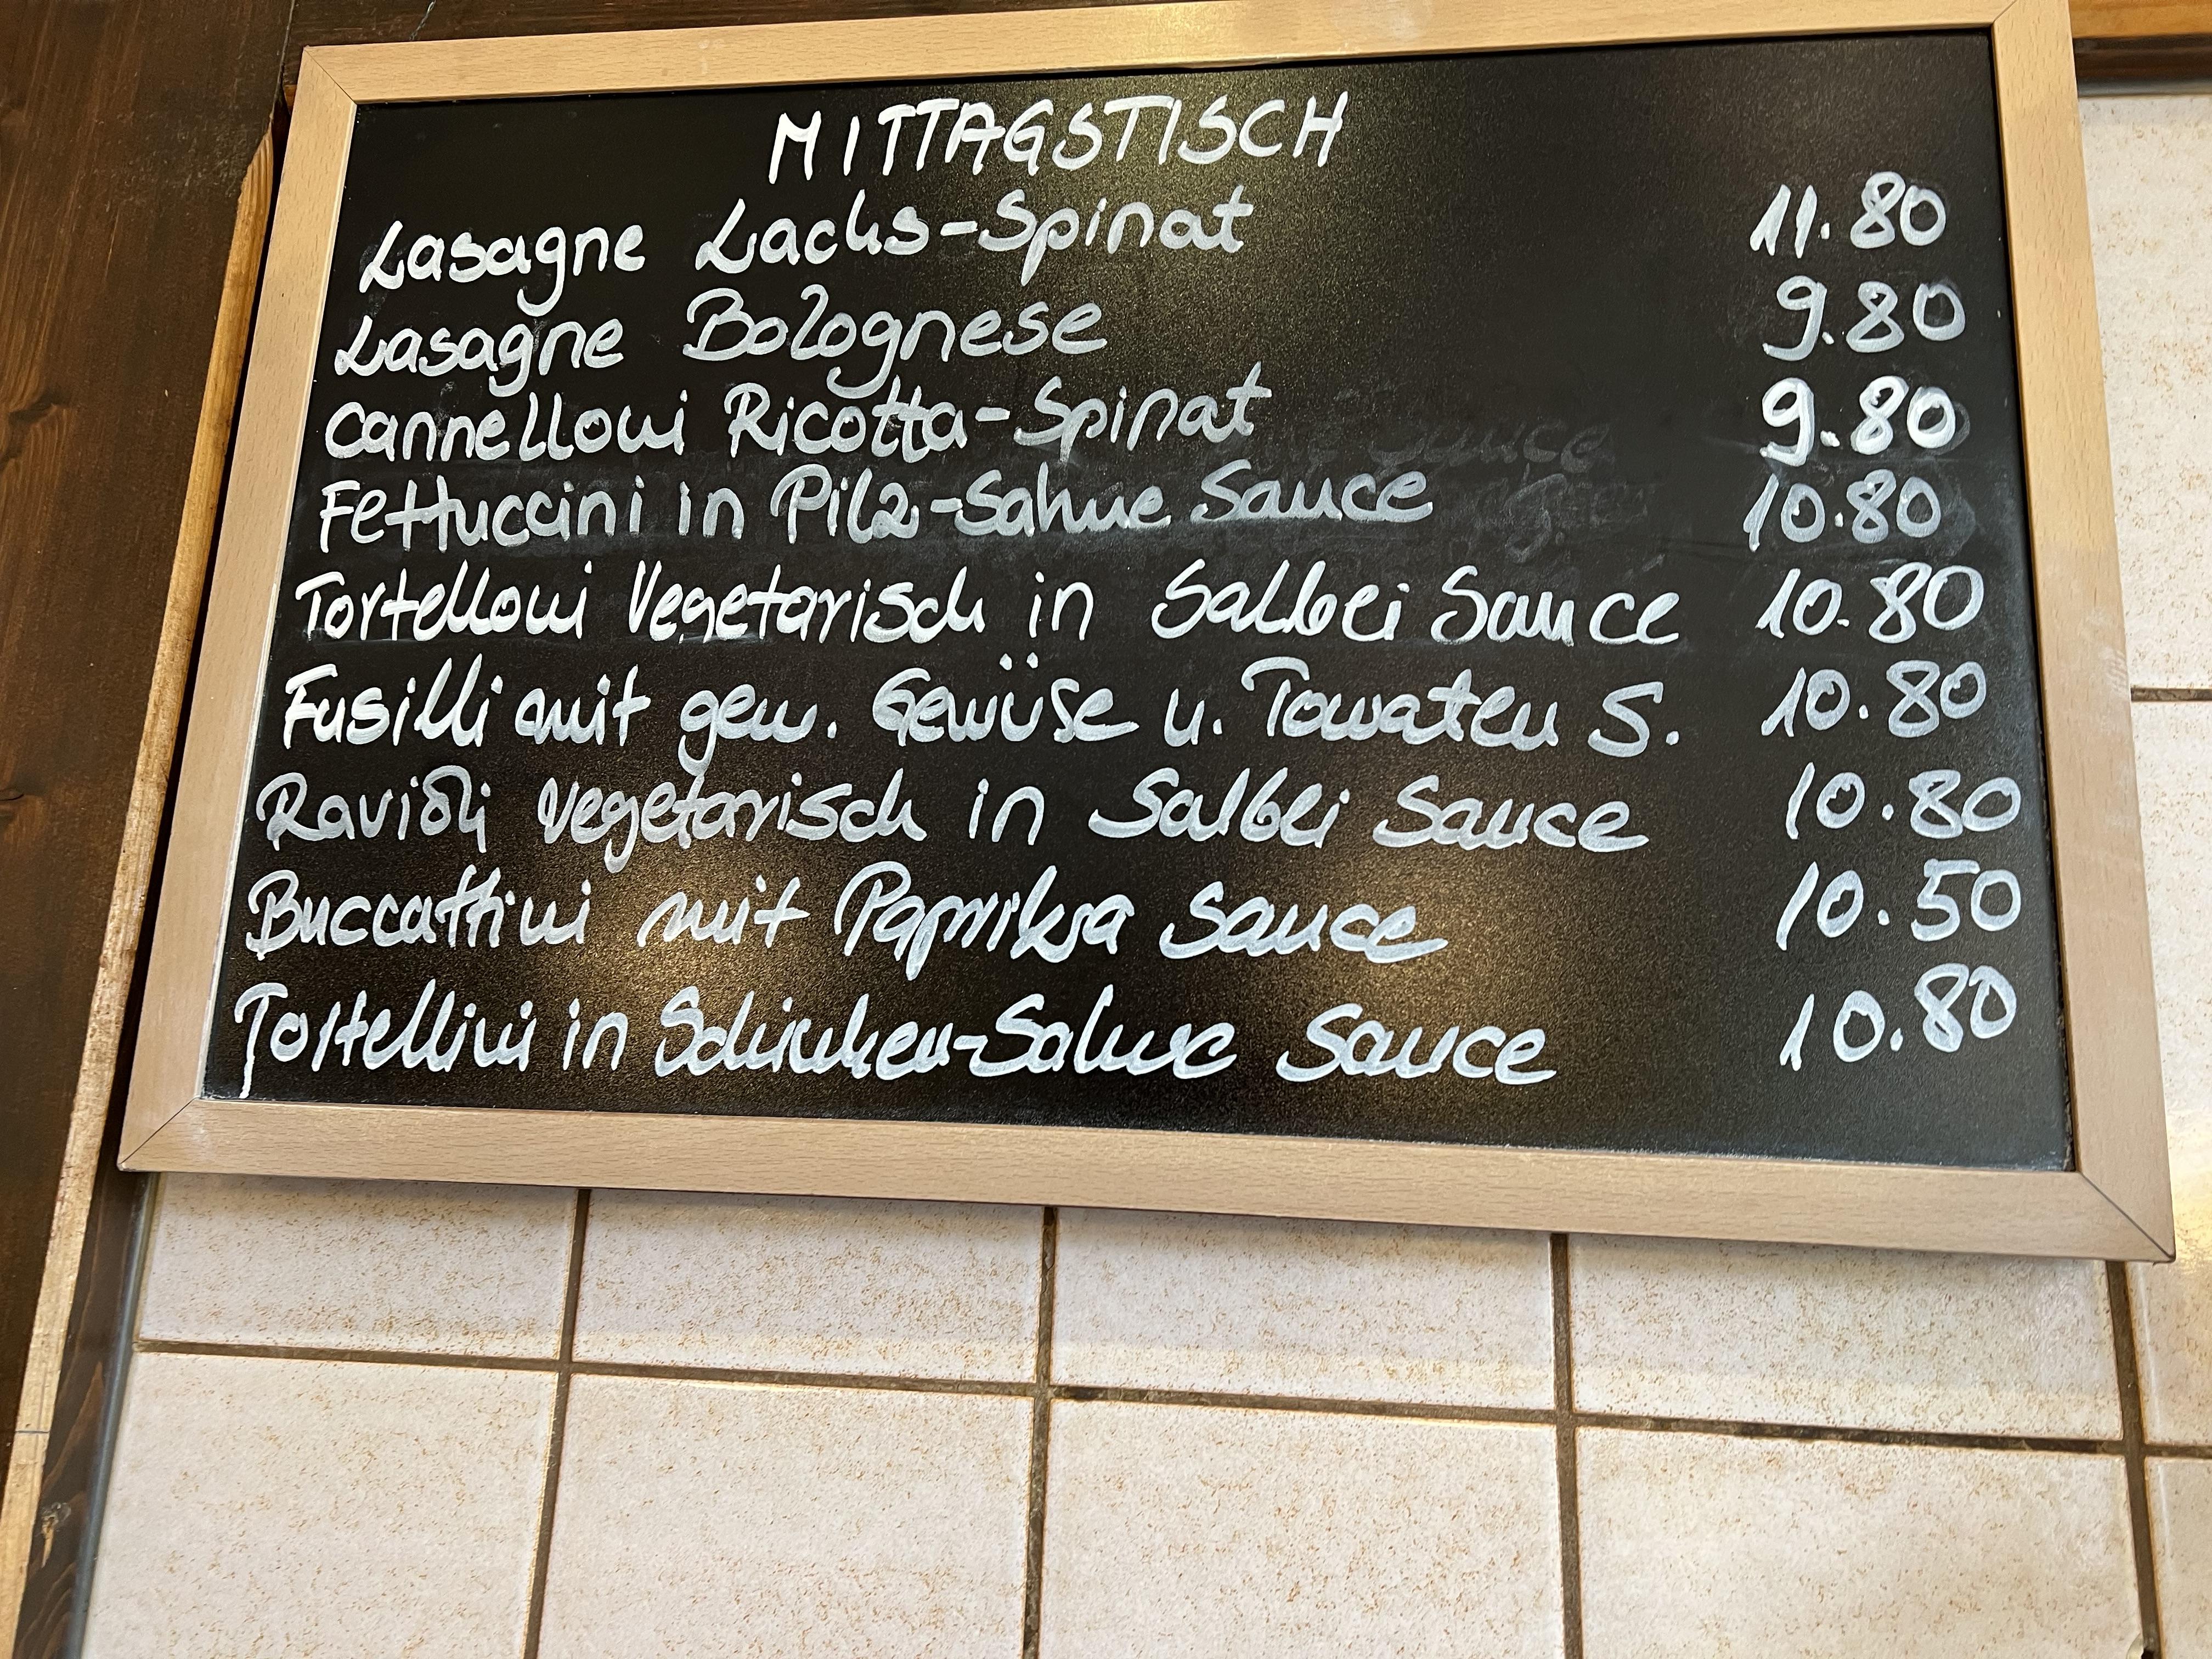 MITTAGSTISCH
Lasagne Lachs-Spinat 11.80
Lasagne Bolognese 9.80
Cannelloni Ricotta-Spinat 9.80
Fettuccini in Pilz-Sahne Sauce 10.80
Tortelloni Vegetarisch in Salbei Sauce 10.80
Fusilli mit gem. Gemüse u. Tomaten S. 10.80
Ravioli Vegetarisch in Salbei Sauce 10.80
Buccattini mit Paprika Sauce 10.50
Tortellini in Schinken-Sahne Sauce 10.80